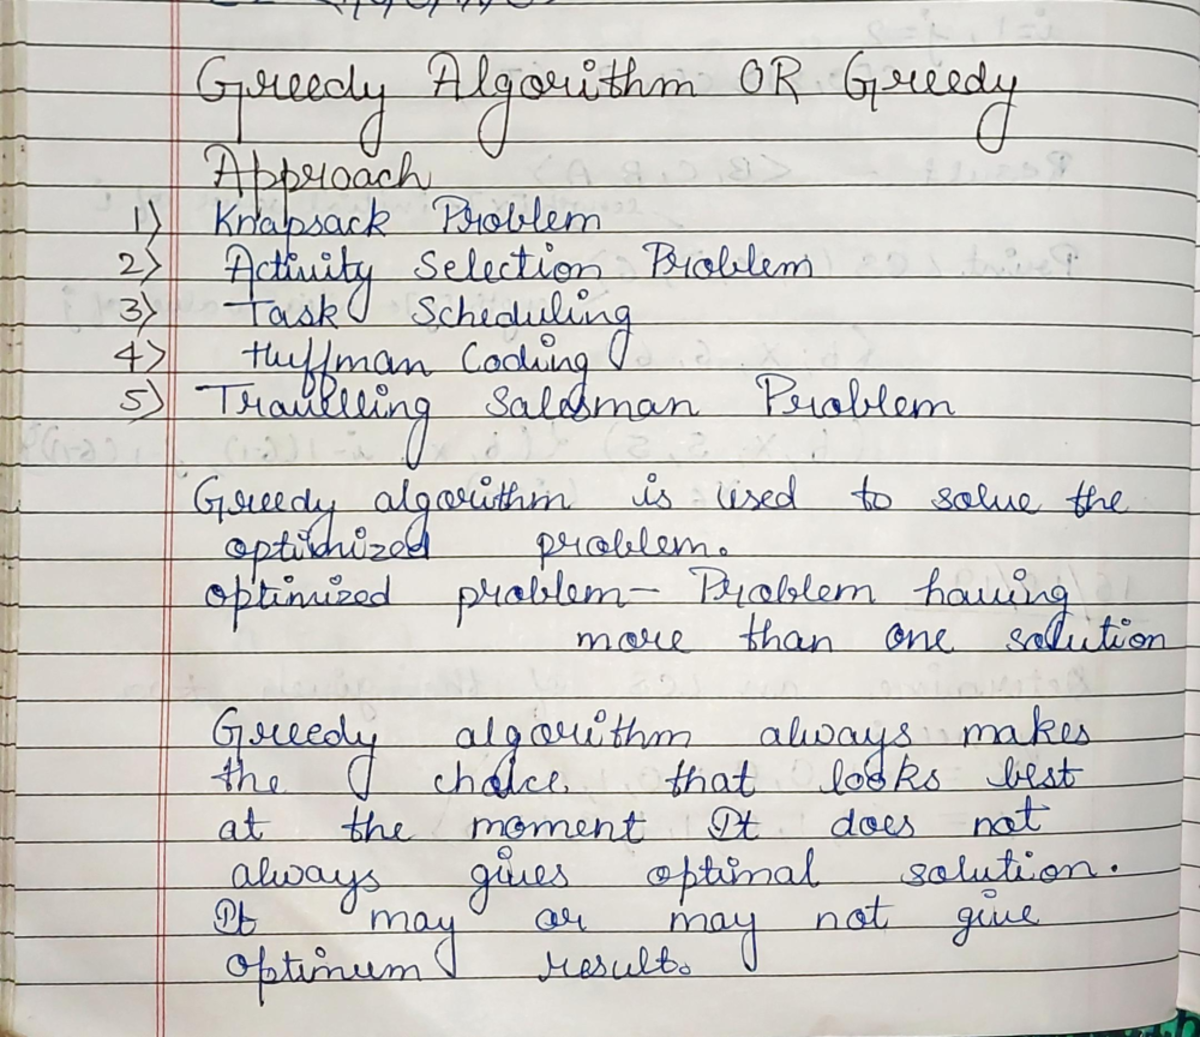 Greedy Algorithm OR Greedy
Approach
1) Knapsack Problem
2) Activity Selection Problem
3) Task Scheduling
4) Huffman Coding
5) Travelling Salesman Problem
Greedy algorithm is used to solve the
optimized problem.
optimized problem - Problem having
more than one solution
Greedy algorithm always makes
the choice that looks best
at the moment It does not
always gives optimal solution.
It may or may not give
optimum result.